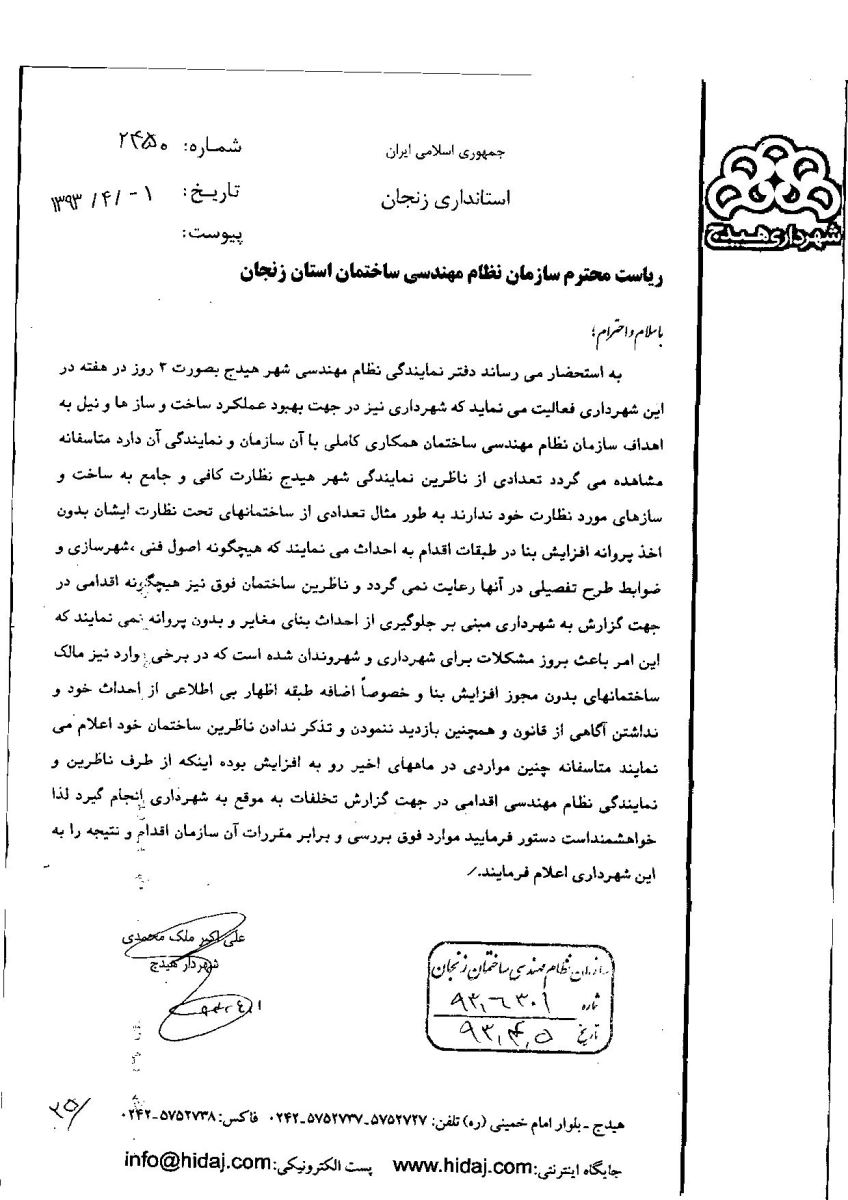 شهرداری هیدج
جمهوری اسلامی ایران
استانداری زنجان
شماره: ۲۴۵۰
تاریخ: ۱۳۹۳/۴/۰۱
پیوست:
ریاست محترم سازمان نظام مهندسی ساختمان استان زنجان
باسلام و احترام؛
به استحضار می رساند دفتر نمایندگی نظام مهندسی شهر هیدج بصورت ۲ روز در هفته در
این شهرداری فعالیت می نماید که شهرداری نیز در جهت بهبود عملکرد ساخت و ساز ها و نیل به
اهداف سازمان نظام مهندسی ساختمان همکاری کاملی با آن سازمان و نمایندگی آن دارد متاسفانه
مشاهده می گردد تعدادی از ناظرین نمایندگی شهر هیدج نظارت کافی و جامع به ساخت و
سازهای مورد نظارت خود ندارند به طور مثال تعدادی از ساختمانهای تحت نظارت ایشان بدون
اخذ پروانه افزایش بنا در طبقات اقدام به احداث می نمایند که هیچگونه اصول فنی ،شهرسازی و
ضوابط طرح تفصیلی در آنها رعایت نمی گردد و ناظرین ساختمان فوق نیز هیچگونه اقدامی در
جهت گزارش به شهرداری مبنی بر جلوگیری از احداث بنای مغایر و بدون پروانه نمی نمایند که
این امر باعث بروز مشکلات برای شهرداری و شهروندان شده است که در برخی وارد نیز مالک
ساختمانهای بدون مجوز افزایش بنا و خصوصاً اضافه طبقه اظهار بی اطلاعی از احداث خود و
نداشتن آگاهی از قانون و همچنین بازدید ننمودن و تذکر ندادن ناظرین ساختمان خود اعلام می
نمایند متاسفانه چنین مواردی در ماههای اخیر رو به افزایش بوده اینکه از طرف ناظرین و
نمایندگی نظام مهندسی اقدامی در جهت گزارش تخلفات به موقع به شهرداری انجام گیرد لذا
خواهشمنداست دستور فرمایید موارد فوق بررسی و برابر مقررات آن سازمان اقدام و نتیجه را به
این شهرداری اعلام فرمایند./
علی اکبر ملک محمدی
شهردار هیدج
سازمان نظام مهندسی ساختمان زنجان
شماره ۹۳,۶۳۰۱
تاریخ ۹۳,۴,۵
هیدج - بلوار امام خمینی (ره) تلفن: ۵۷۵۲۷۲۷-۵۷۵۲۷۳۷-۰۲۴۲ فاکس: ۵۷۵۲۷۳۸-۰۲۴۲
جایگاه اینترنتی: www.hidaj.com پست الکترونیکی: info@hidaj.com